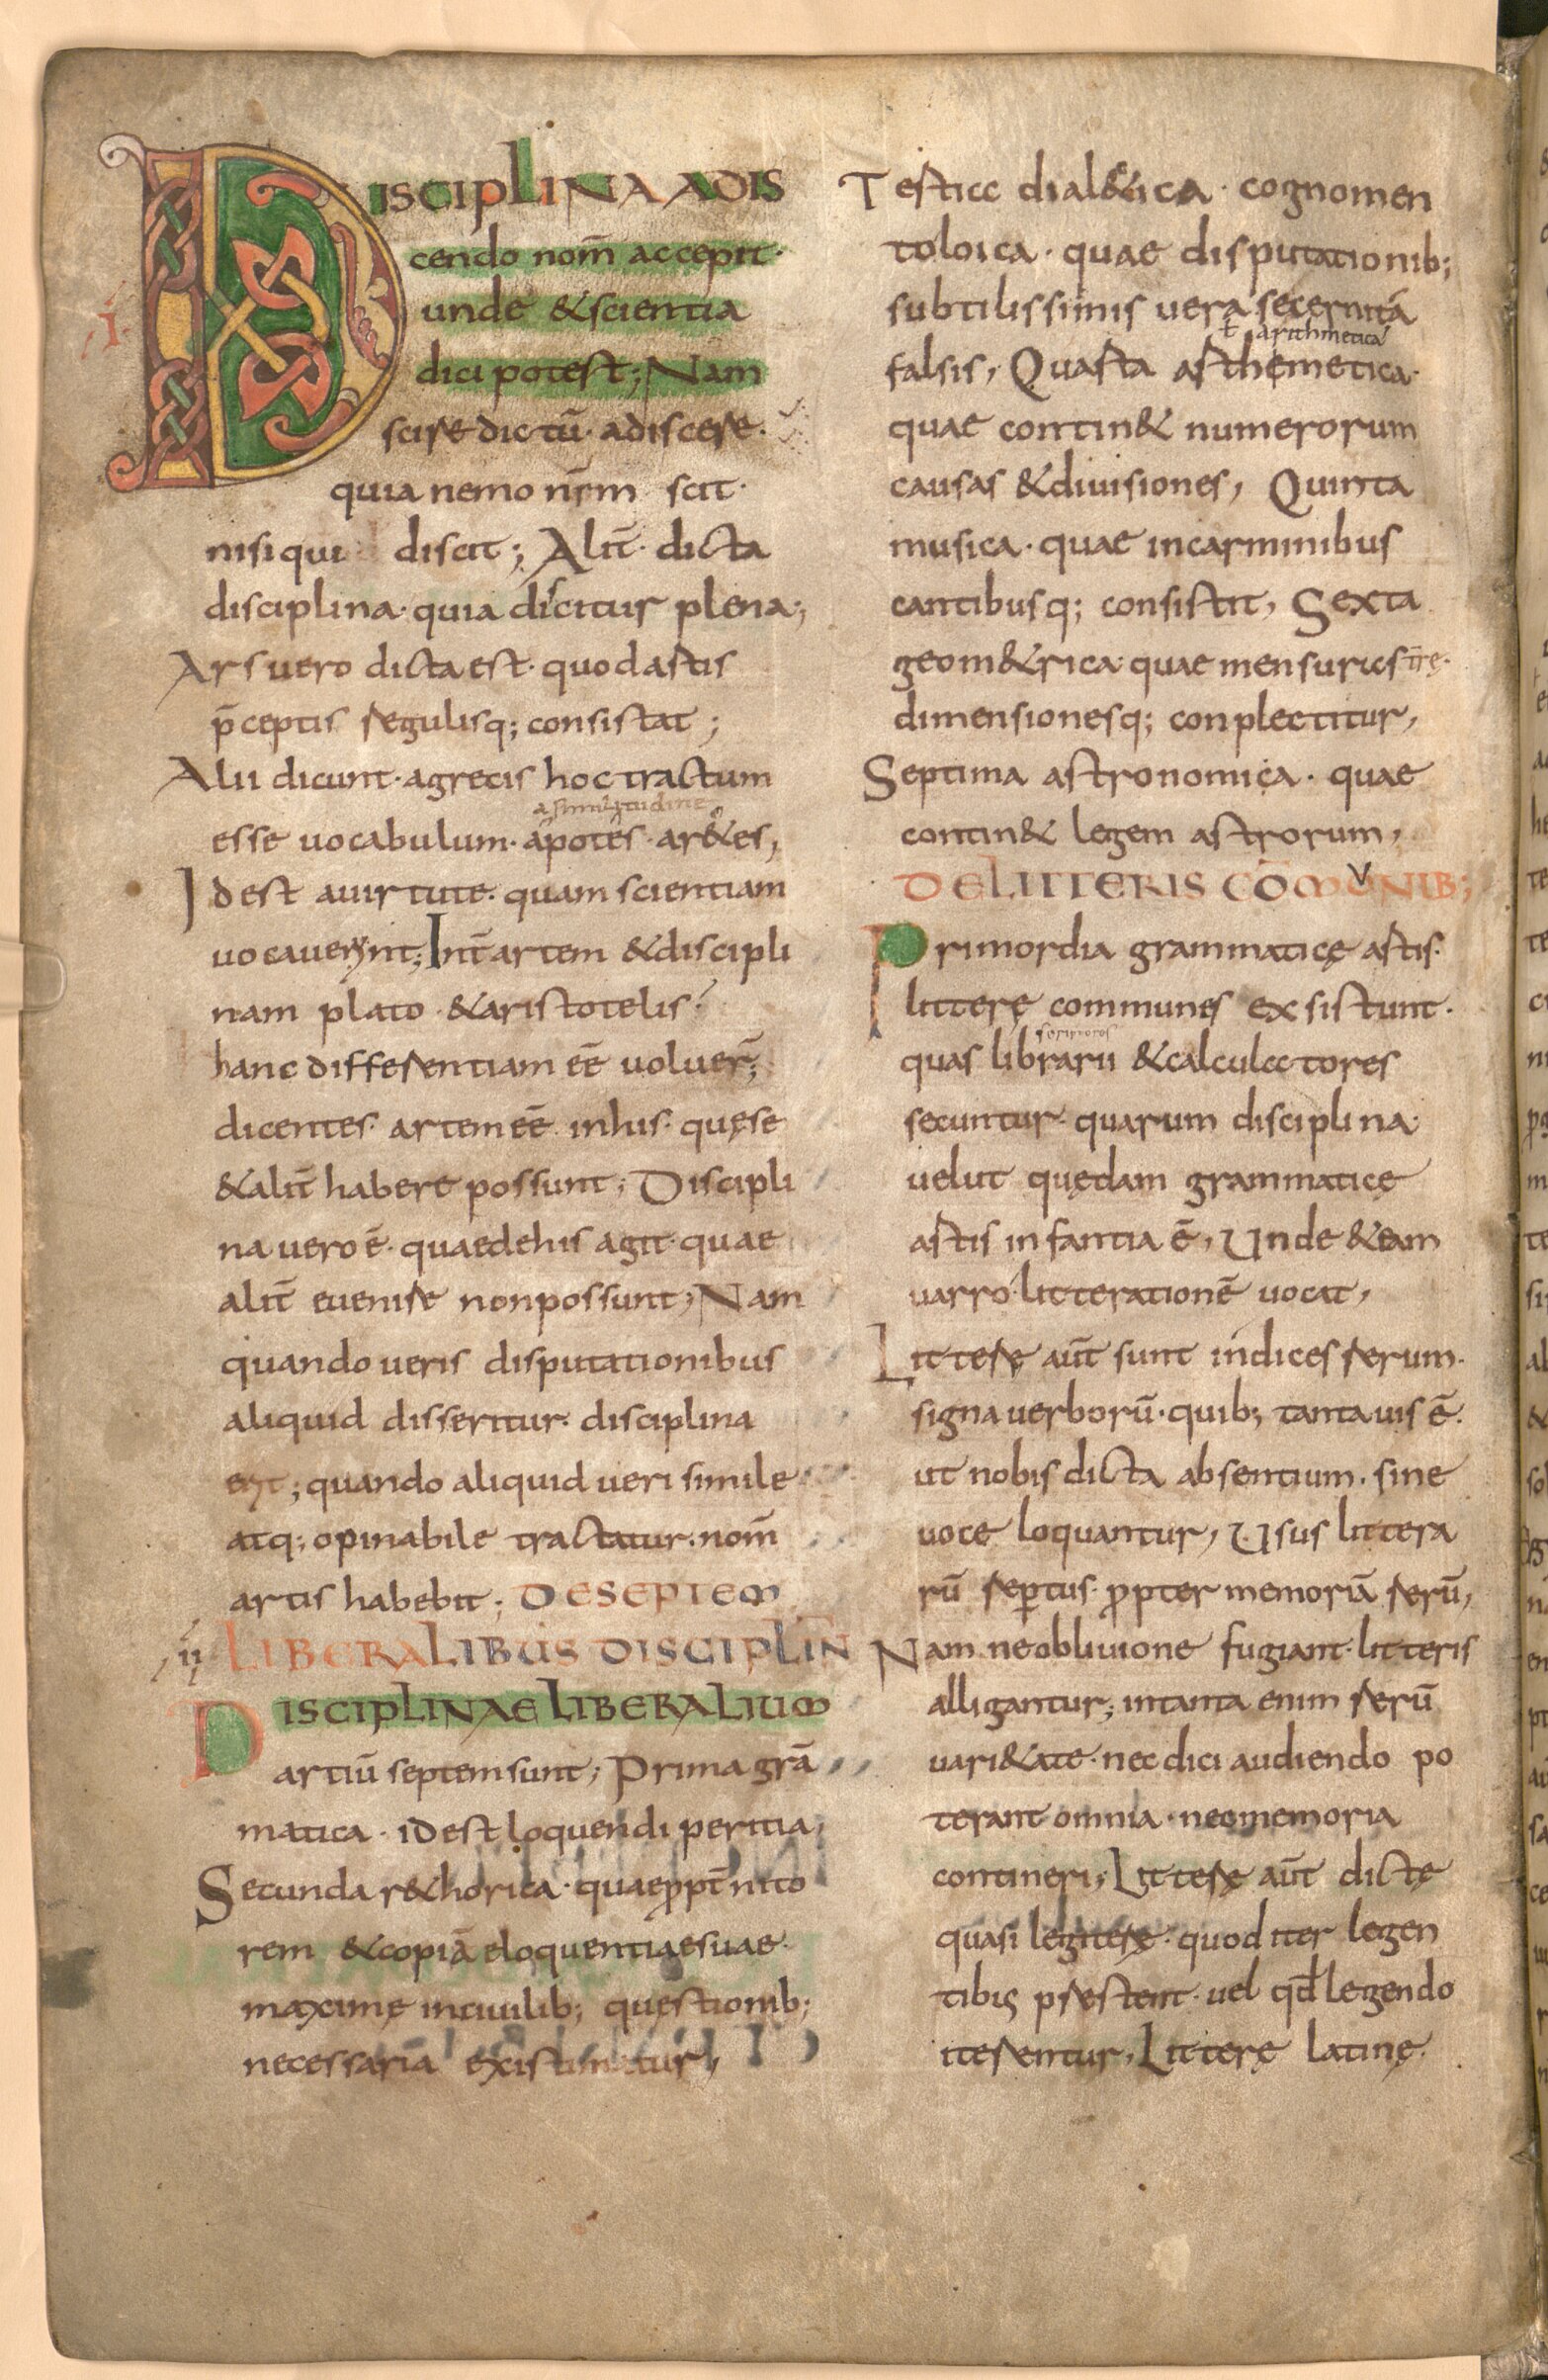 .I.
DISCIPLINA A DIS
cendo nom̄ accepit·
unde &scientia
dici potest; Nam
scire dictū· adiscere·
quia nemo nr̄m scit·
nisi qui discit; Alit̄· dicta
disciplina· quia discitur plena;
Ars uero dicta est· quod artis
p̄ceptis regulisq; consistat;
Alii dicunt· agrecis hoc tractum
a similitudine
esse uocabulum· apotes· ar&es,
Id est auirtute· quam scientiam
uocauerunt; Int̄ artem &discipli
nam plato &aristotelis·
hanc differentiam eē uoluer̄;
dicentes· artem eē inhis· quęse
&alit̄ habere possunt; Discipli
na uero ē· quaedehis agit· quae
alit̄ euenire nonpossunt; Nam
quando ueris disputationibus
aliquid disseritur· disciplina
erit; quando aliquid ueri simile
atq; opinabile tractatur· nom̄
artis habebit; DE SEPTEM
.ii. LIBERALIBUS DISCIPLIN̄
DISCIPLINAE LIBERALIUM
artiū septem sunt; Prima grā
matica· id est loquendi peritia,
Secunda r&horica· quae ppt̄ nito
rem &copiā eloquentiae suae·
maxime inciuilib; questionib;
necessaria existimatur,
Testicc dial&ica· cognomen
toloica· quae disputationib;
subtilissimis uera secernit á
ł arithmetica
falsis, Quarta arthemetica·
quae contin& numerorum
causas &diuisiones, Quinta
musica· quae incarminibus
cantibusq; consistit, Sexta
geom&rica· quae mensuras tr̄ę·
dimensionesq; conplectitur,
Septima astronomica· quae
contin& legem astrorum,
DE LITTERIS CŌMUNIB;
Primordia grammaticę artis·
litterę communes exsistunt·
scriptores
quas librarii &calculcctores
secuntur· quarum disciplina·
uelut quędam grammaticę
artis infantia ē, Unde &eam
uarro· litterationē uocat,
Litterę aut̄ sunt indices rerum·
signa uerborū· quib; tanta uis ē·
ut nobis dicta absentium· sine
uoce loquantur, Usus littera
rū reptus· ppter memoriā rerū,
Nam ne obliuione fugiant· litteris
alligantur; intanta enim rerū
uari&ate· nec dici audiendo po
terant omnia· necmemoria
contineri, Litterę aut̄ dictę
quasi legiterę· quod iter legen
tibus prestent· uel qd̄ legendo
iterentur, Litterę latinę·